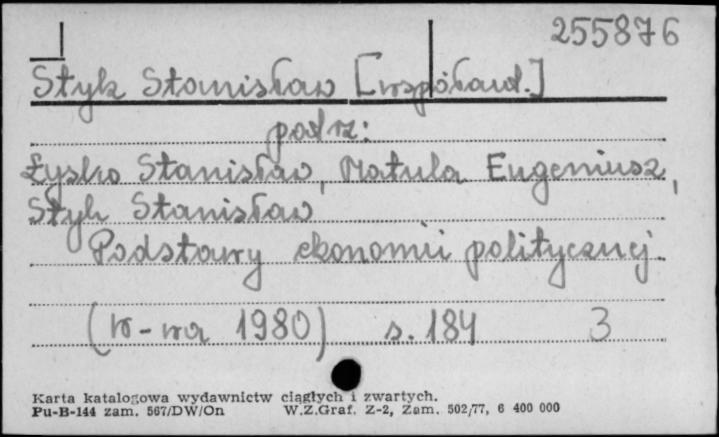 255876
Styk Stanisław [współaut.]
podrz:
Łysko Stanisław, Matula Eugeniusz,
Styk Stanisław
Podstawy ekonomii politycznej.
(W-wa 1980) s. 184 3
Karta katalogowa wydawnictw ciągłych i zwartych.
Pu-B-144 zam. 567/DW/On W.Z.Graf. Z-2, Zam. 502/77, 6 400 000